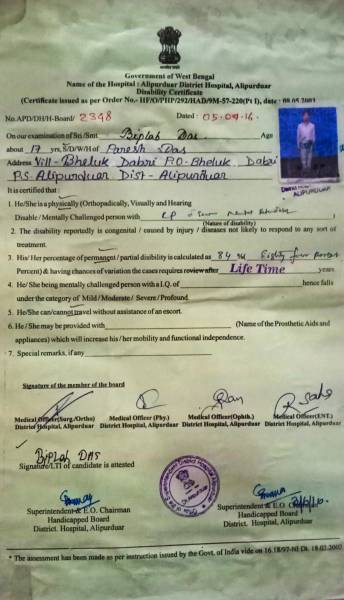 Government of West Bengal
Name of the Hospital : Alipurduar District Hospital, Alipurduar
Disability Certificate
(Certificate issued as per Order No.- HF/O/PHP/292/HAD/9M-57-220(Pt I), date : 08.05.2001
No.APD/DH/H-Board/ 2348 Dated : 05-09-16.
On our examination of Sri/Smt Biplab Das. Age
about 17 yrs, S/D/W/H of Paresh Das
Address Vill- Bheluk Dabri P.O- Bheluk. Dabri
P.S- Alipurduar Dist- Alipurduar
ALIPURDUAR
It is certified that :
1. He/She is a physically (Orthopadically, Visually and Hearing
Disable / Mentally Challenged person with
(Nature of disability)
2. The disability reportedly is congenital / caused by injury / diseases not likely to respond to any sort of
treatment.
3. His/ Her percentage of permanent / partial disibility is calculated as 84 Eighty four
Percent) & having chances of variation the cases requires review after Life Time years.
4. He/ She being mentally challenged person with a I.Q. of hence falls
under the category of Mild / Moderate / Severe / Profound.
5. He/She can/cannot travel without assistance of an escort.
6. He / She may be provided with (Name of the Prosthetic Aids and
appliances) which will increase his / her mobility and functional independence.
7. Special remarks, if any
Signature of the member of the board
Medical Officer(Surg./Ortho) Medical Officer (Phy.) Medical Officer (Ophth.) Medical Officer(ENT.)
District Hospital, Alipurduar District Hospital, Alipurduar District Hospital, Alipurduar District Hospital, Alipurduar
BIPLAB DAS
Signature/LTI of candidate is attested
Superintendent & E.O. Chairman Superintendent & E.O.
Handicapped Board Handicapped Board
District. Hospital, Alipurduar District. Hospital, Alipurduar
* The assessment has been made as per instruction issued by the Govt. of India vide on 16.18/97-NI Dt. 18.02.2002